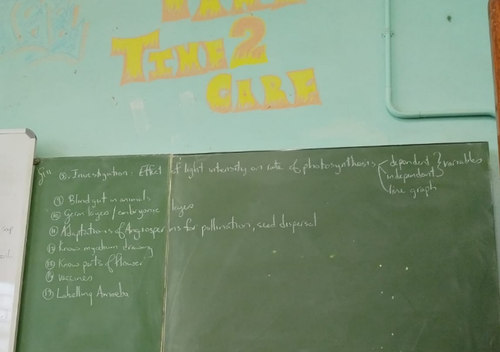 TIME 2
CARE
Investigation Effect of light intensity on rate of photosynthesis dependent variables
independent
line graph
Blood gut in animals
Germ layers / embryonic layers
Adaptations of Angiosperms for pollination, seed dispersal
Know mycelium drawing
Know parts of flower
Vaccines
Labelling Amoeba